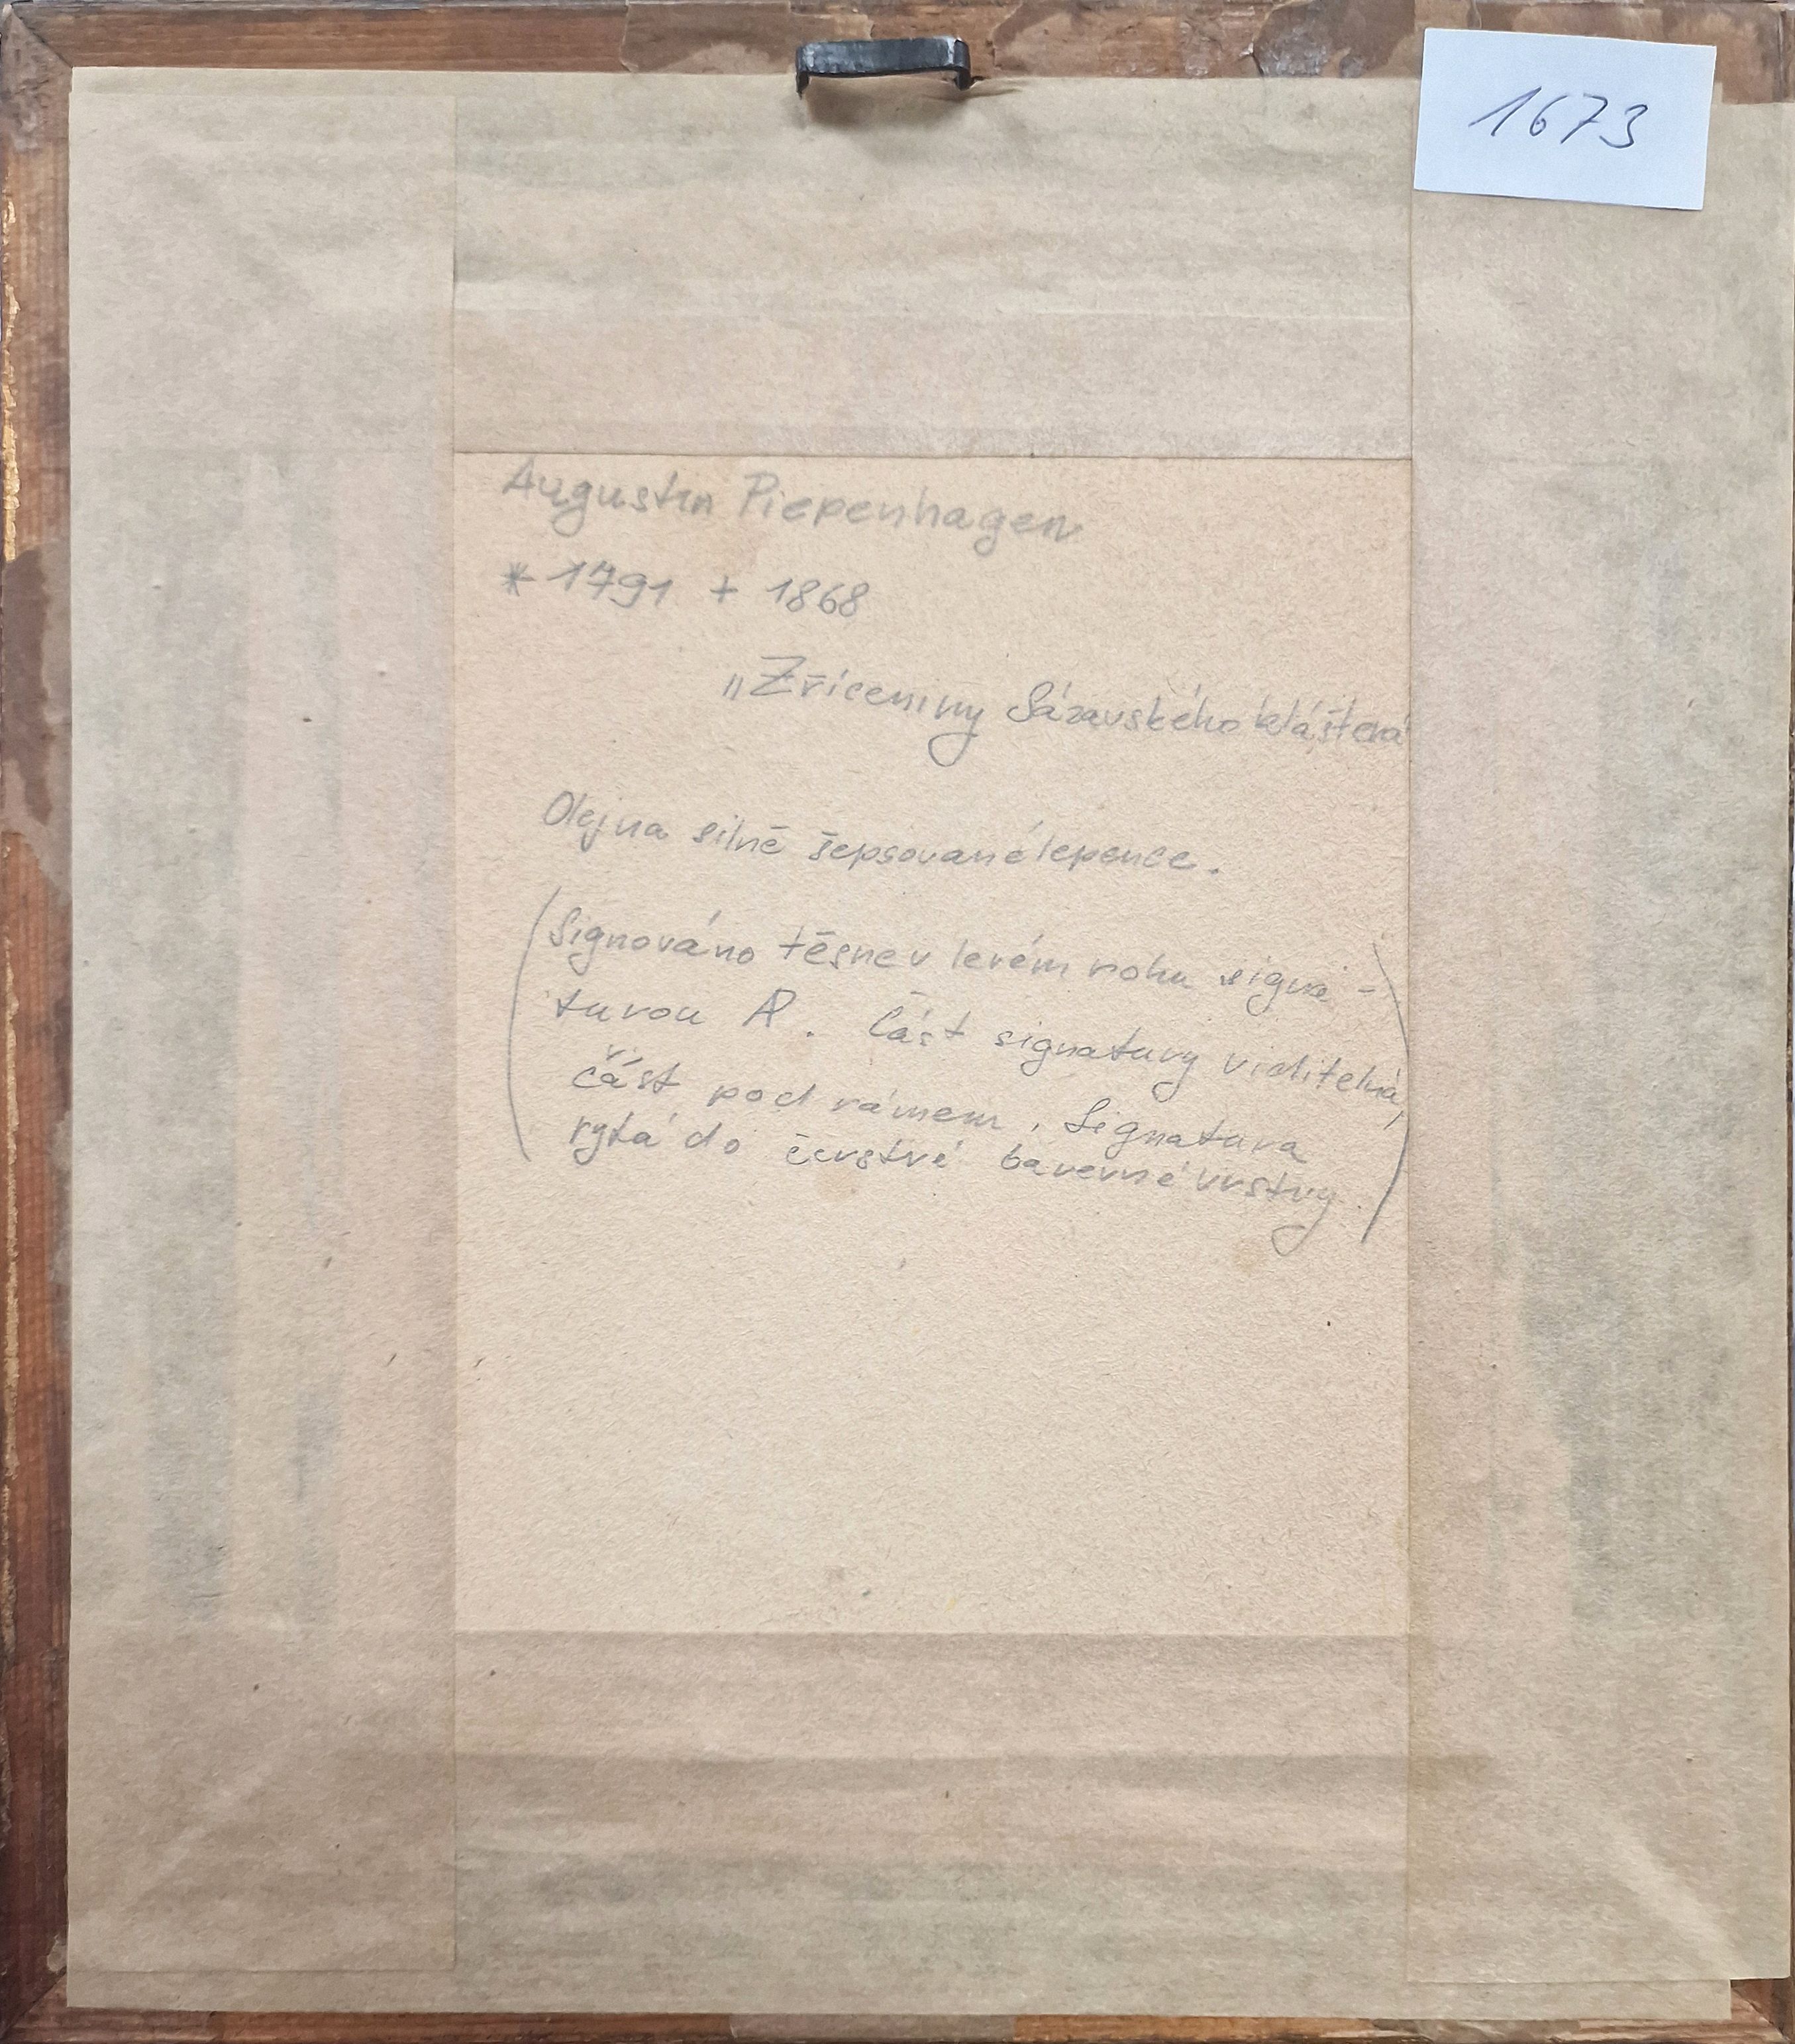 1673
Augustin Piepenhagen
* 1791 + 1868
„Zříceniny Sázavského kláštera
Olej na silně šepsované lepence.
(Signováno těsne v levém rohu signa-
turou AP. Část signatury viditelná,
část pod rámem. Signatura
rytá do čerstvé barevné vrstvy.)